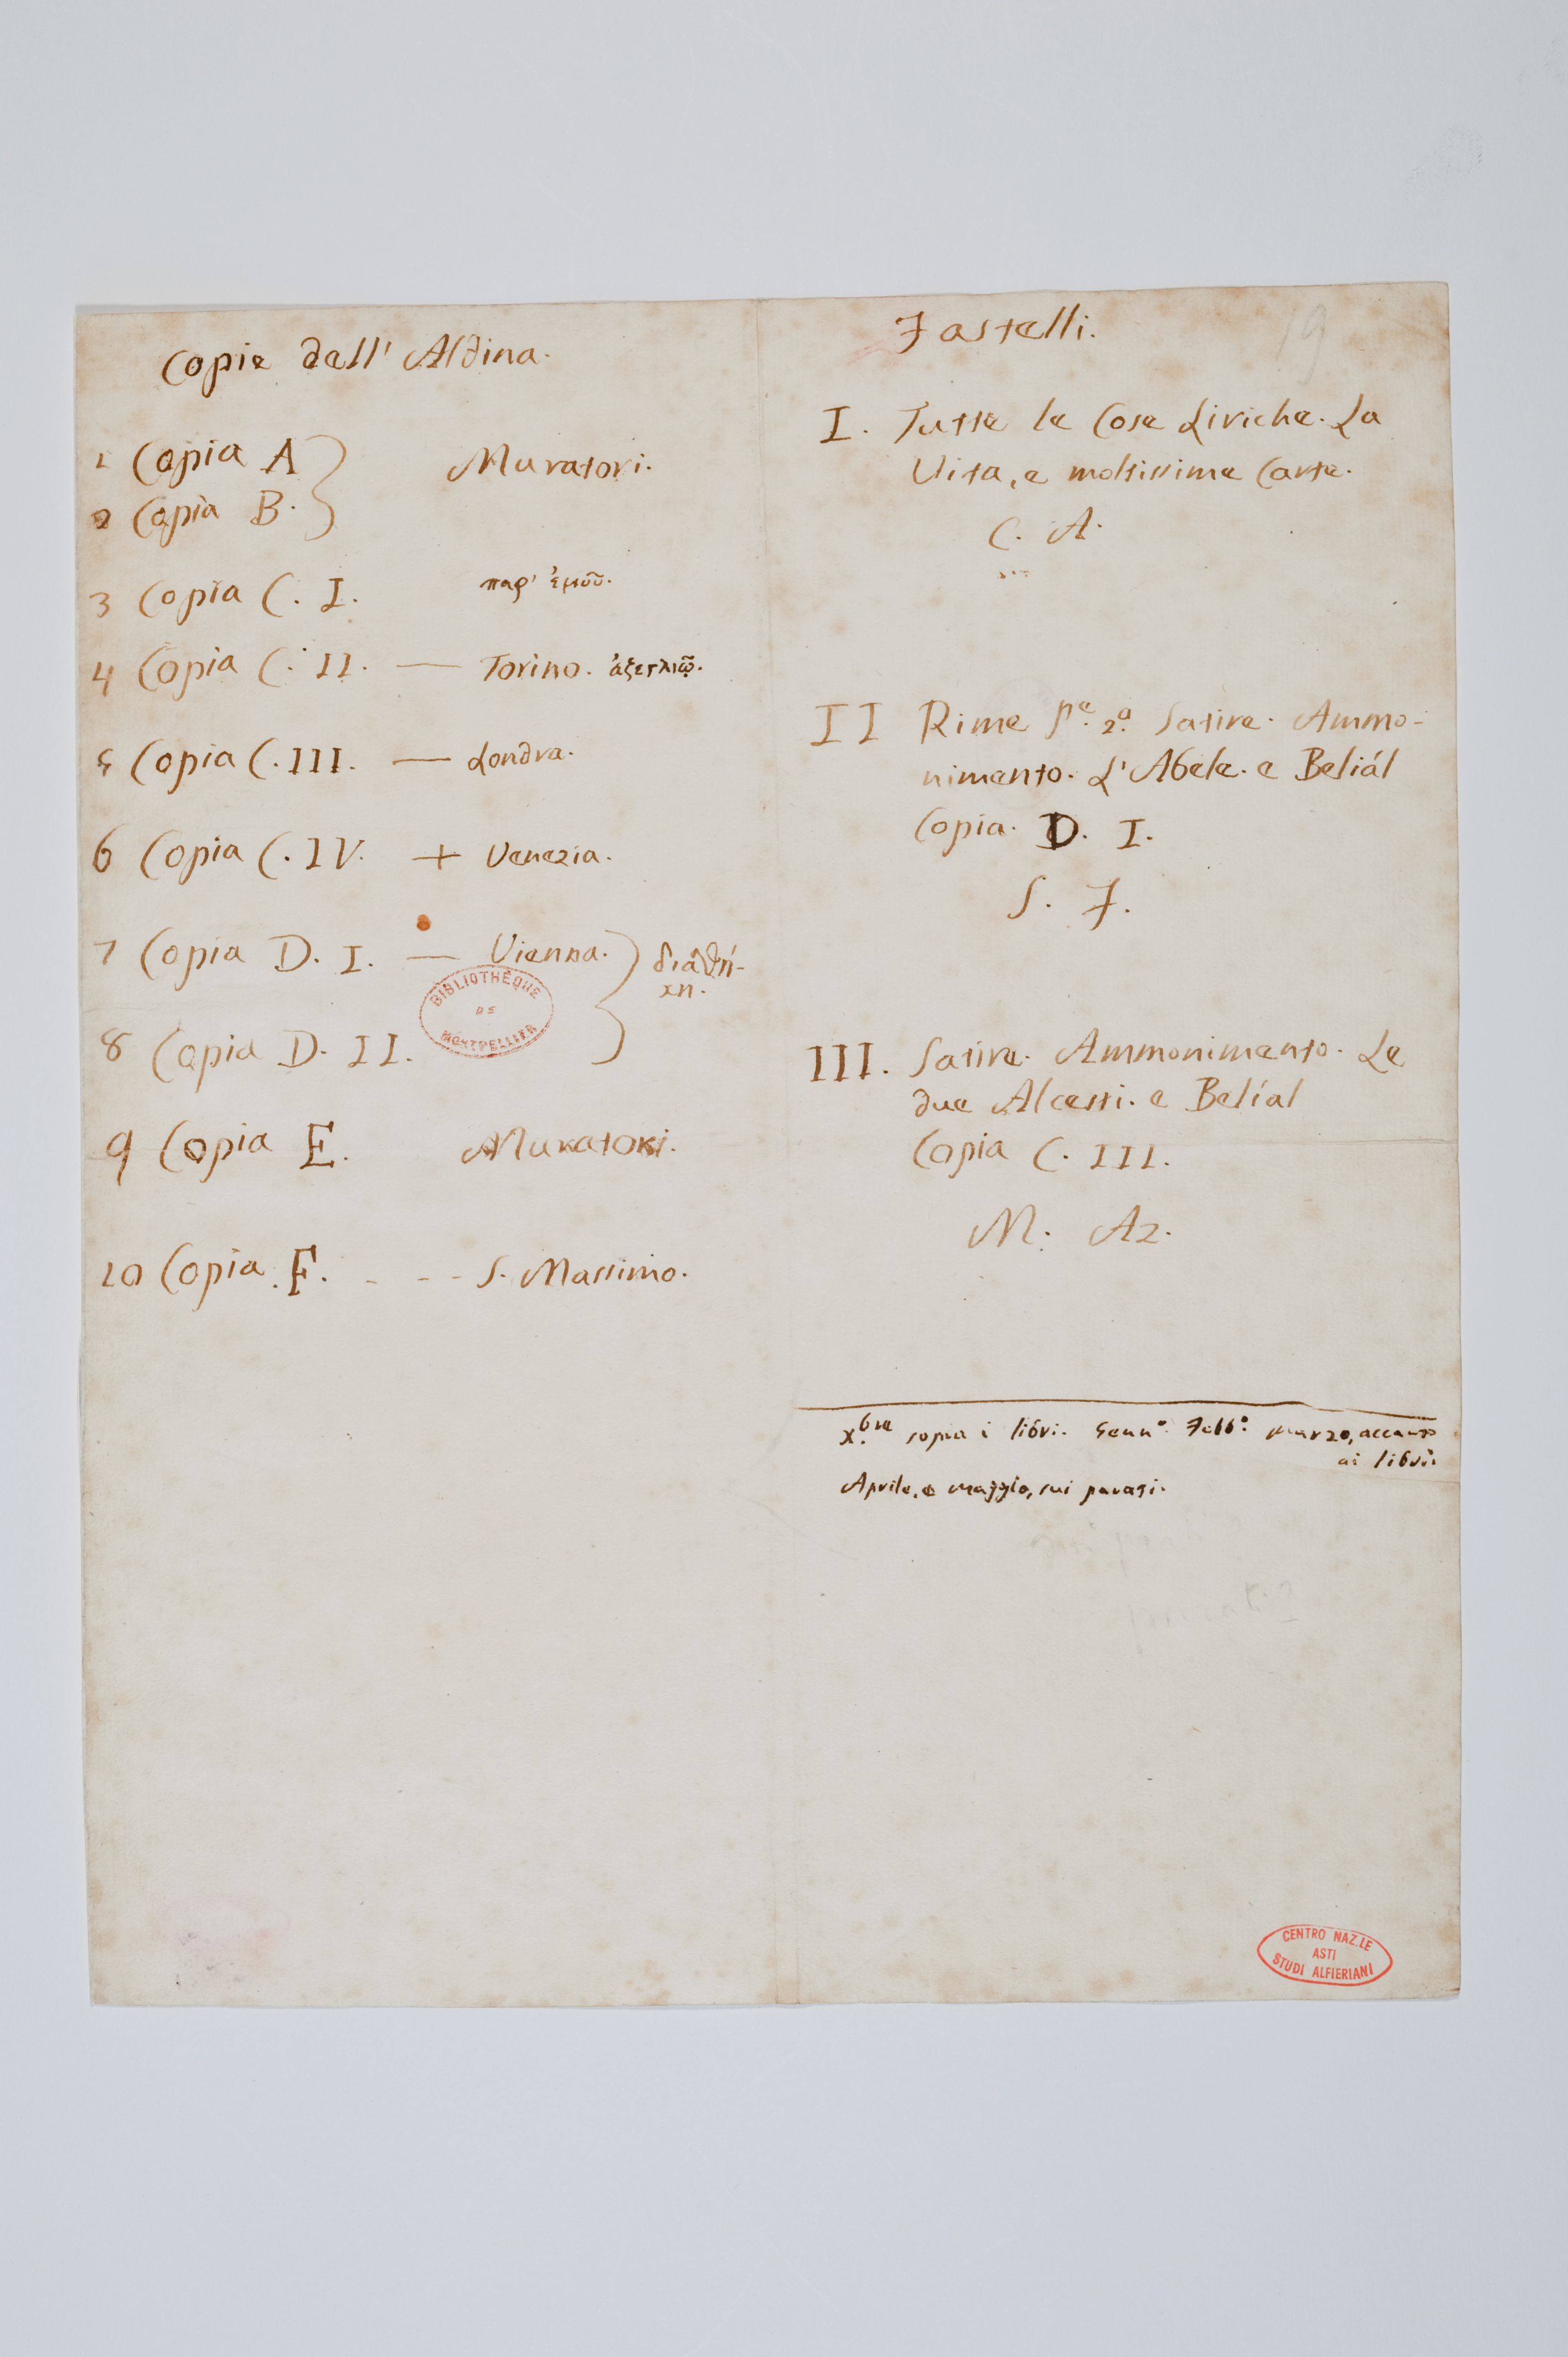 Copie dell' Aldina.
1 Copia A
Muratori.
2 Copia B.
3 Copia C. I.
παρ' ἐμοῦ.
4 Copia C. II. — Torino.
5 Copia C. III. — Londra.
6 Copia C. IV. + Venezia.
7 Copia D. I. — Vienna.
διαθή-
κη.
8 Copia D. II.
9 Copia E. Muratori.
10 Copia F. - - - S. Massimo.
BIBLIOTHÈQUE
DE
MONTPELLIER
19
Fastelli.
I. Tutte le Cose Liriche. La
Vita, e moltissime Carte.
C. A.
II Rime Pe. 2a. Satire. Ammo-
nimento. L'Abele. e Beliál
Copia. D. I.
S. F.
III. Satire. Ammonimento. Le
due Alcesti. e Belíal
Copia C. III.
M. Az.
Xbre sopra i libri. Genno. Febbo. marzo, accanto
ai libri.
Aprile, e maggio, sui parati.
CENTRO NAZ.LE
ASTI
STUDI ALFIERIANI